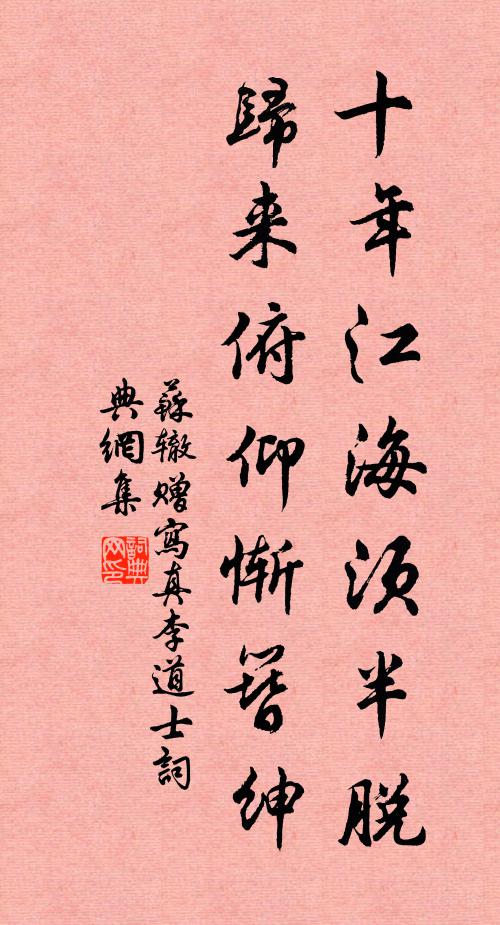 十年江海须半脱
歸来俯仰惭簪紳
蘇辙赠寫真李道士詞
典網集
詞典
网印